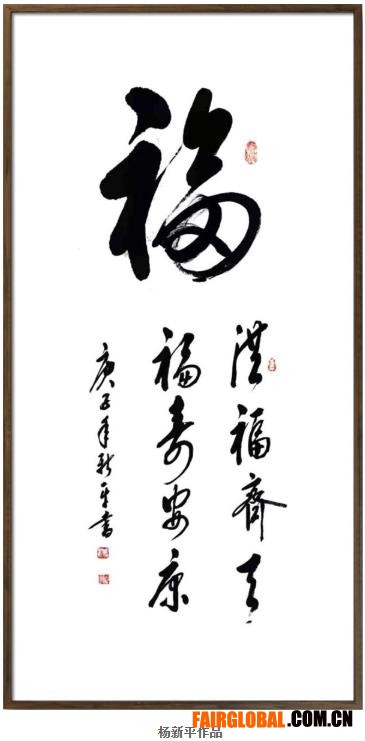 福
洪福齐天
福寿安康
庚子年新平书
FAIRGLOBAL.COM.CN
杨新平作品